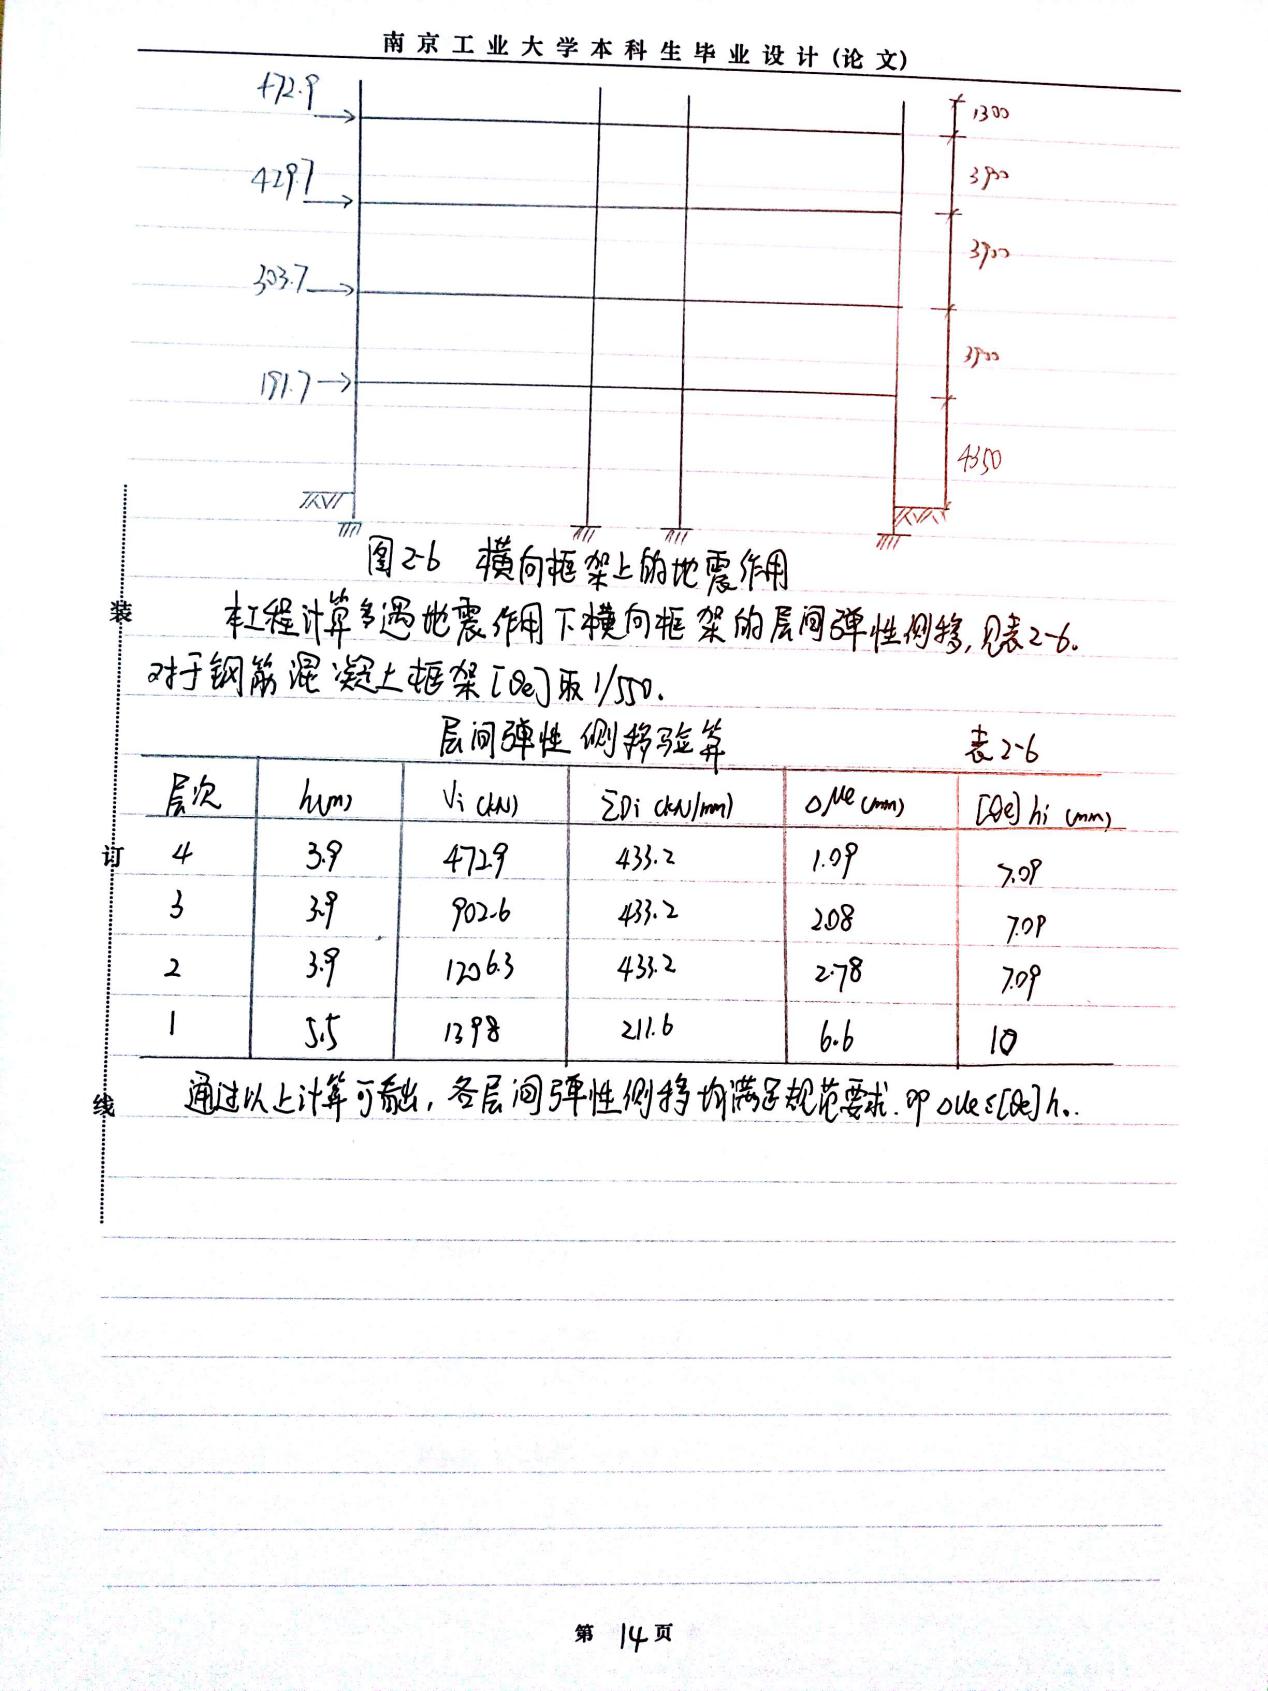 南京工业大学本科生毕业设计(论文)
472.9
1300
429.7
3900
303.7
3900
191.7
3900
4350
图2-6 横向框架上的地震作用
本工程计算多遇地震作用下横向框架的层间弹性侧移,见表2-6.
对于钢筋混凝土框架[θe]取1/550.
层间弹性侧移验算 表2-6
层次 h(m) Vi (kN) ΣDi (kN/mm) Δμe (mm) [θe] hi (mm)
4 3.9 472.9 433.2 1.09 7.09
3 3.9 902.6 433.2 2.08 7.09
2 3.9 1206.3 433.2 2.78 7.09
1 5.5 1398 211.6 6.6 10
通过以上计算可看出,各层间弹性侧移均满足规范要求.即ΔUe≤[θe]h.
装
订
线
第 14 页